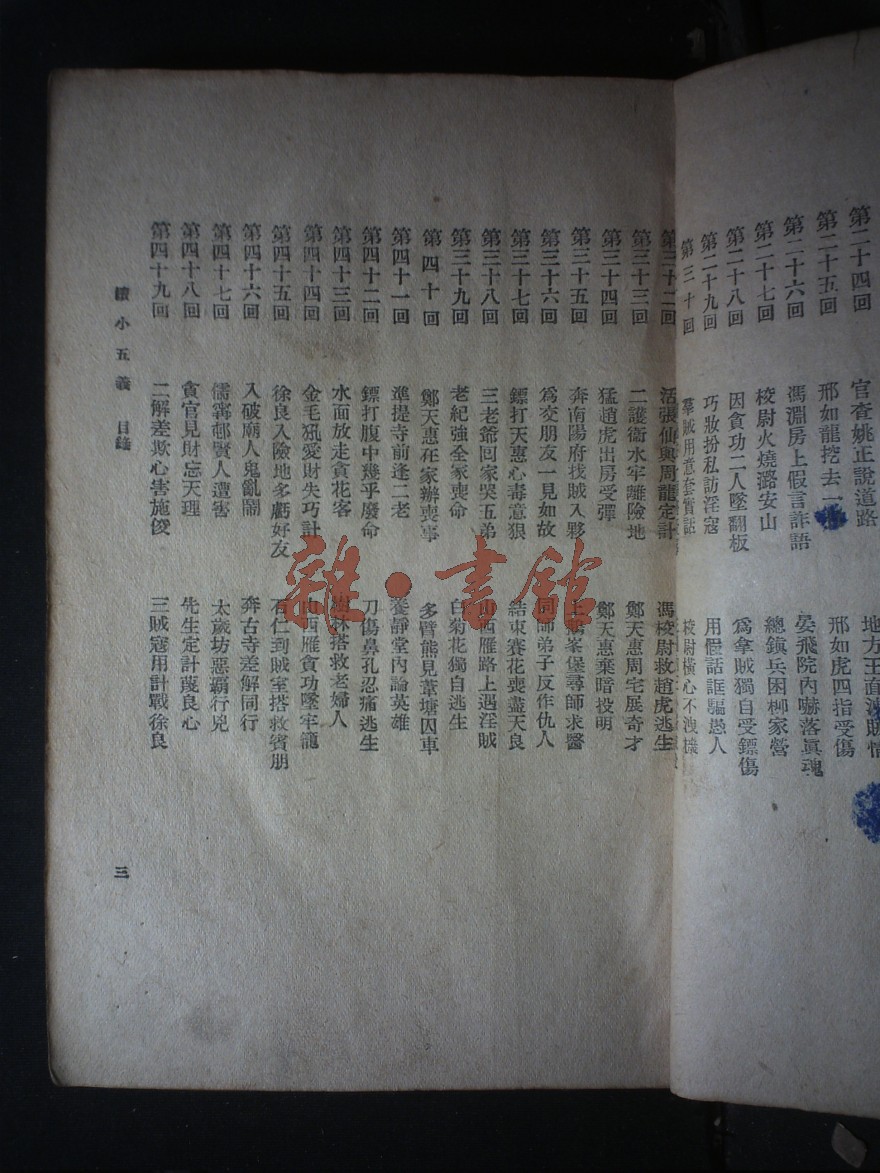 第二十四回 官查姚正說道路 地方王直
第二十五回 邢如龍挖去一 邢如虎四指受傷
第二十六回 馮淵房上假言詐語 晏飛院內嚇落眞魂
第二十七回 校尉火燒潞安山 總鎮兵困柳家營
第二十八回 因貪功二人墜翻板 爲拿賊獨自受鏢傷
第二十九回 巧妝扮私訪淫寇 用假話誆騙愚人
第三十回 羣賊用意套實話 校尉橫心不洩機
第三十二回 活張仙與周龍定計 馮校尉救趙虎逃生
第三十三回 二護衞水牢離險地 鄭天惠周宅展奇才
第三十四回 猛趙虎出房受彈 鄭天惠棄暗投明
第三十五回 奔南陽府找賊入夥 上鵝峯堡尋師求醫
第三十六回 爲交朋友一見如故 同師弟子反作仇人
第三十七回 鏢打天惠心毒意狠 結束賽花喪盡天良
第三十八回 三老爺回家哭五弟 山西雁路上遇淫賊
第三十九回 老紀強全家喪命 白菊花獨自逃生
第四十回 鄭天惠在家辦喪事 多臂熊見葦塘囚車
第四十一回 準提寺前逢二老 養靜堂內論英雄
第四十二回 鏢打腹中幾乎廢命 刀傷鼻孔忍痛逃生
第四十三回 水面放走貪花客 樹林搭救老婦人
第四十四回 金毛犼愛財失巧計 山西雁貪功墜牢籠
第四十五回 徐良入險地多虧好友 石仁到賊室搭救賓朋
第四十六回 入破廟人鬼亂鬧 奔古寺差解同行
第四十七回 儒寧邨賢人遭害 太歲坊惡霸行兇
第四十八回 貪官見財忘天理 先生定計蔑良心
第四十九回 二解差欺心害施俊 三賊寇用計戰徐良
續小五義 目錄
三
雜·書館